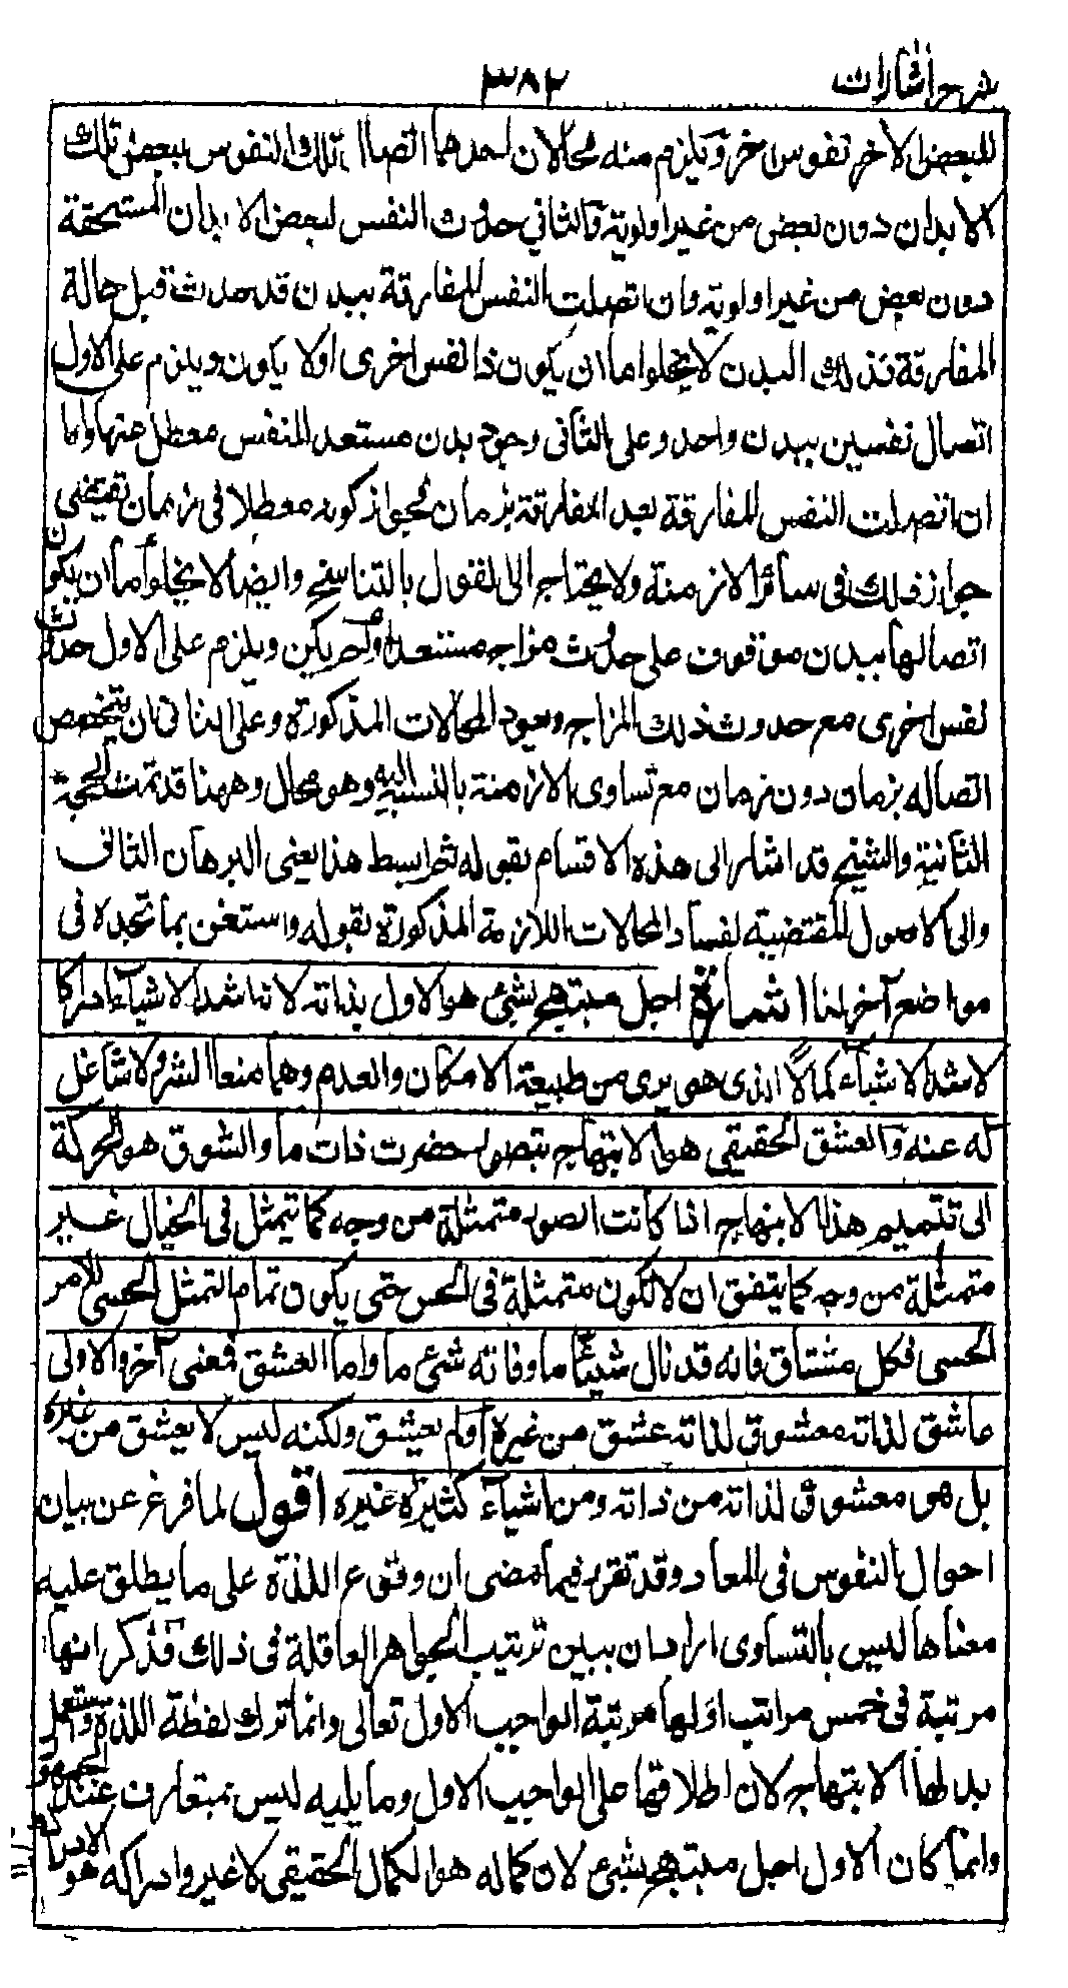 شرح اشارات
٣٨٢
للبعض الاخر نفوس اخر ويلزم منه محالان احدهما اتصال تلك النفوس ببعض تلك
الابدان دون بعض من غير اولوية والثاني حدوث النفس لبعض الابدان المستحقة
دون بعض من غير اولوية وان اتصلت النفس المفارقة ببدن قد حدث قبل حالة
المفارقة فذلك البدن لا يخلوا ما ان يكون ذا نفس اخرى اولا يكون ويلزم على الاول
اتصال نفسين ببدن واحد وعلى الثانى وجود بدن مستعد للنفس معطل عنها واما
ان اتصلت النفس المفارقة بعد المفارقة بزمان فجواز كونه معطلا فى زمان تقتضى
جواز ذلك فى سائر الازمنة ولا يحتاج الى القول بالتناسخ وايضا لا يخلوا ما ان يكون
اتصالها ببدن موقوف على حدوث مزاج مستعد او لم يكن ويلزم على الاول حدوث
نفس اخرى مع حدوث ذلك المزاج ويعود المحالات المذكورة وعلى الثانى ان يتخصص
اتصاله بزمان دون زمان مع تساوى الازمنة بالنسبة اليه وهو محال وههنا قد تمت الحجة
الثانية والشيخ قد اشار الى هذه الاقسام بقوله ثم ابسط هذا يعنى البرهان الثانى
والى الاصول المقتضية لفساد المحالات اللازمة المذكورة بقوله واستغن بما تجده فى
مواضع آخر لنا اشارة اجل مبتهج بشئ هو الاول بذاته لانه اشد الاشياء ادراكا
لاشد الاشياء كمالا الذى هو برى من طبيعة الامكان والعدم وهما منعا الشر ولا شاغل
له عنه والعشق الحقيقى هو الابتهاج بتصور حضرت ذات ما والشوق هو الحركة
الى تتميم هذا الابتهاج اذا كانت الصورة متمثلة من وجه كما تتمثل فى الخيال غير
متمثلة من وجه كما يتفق ان لا تكون متمثلة فى الحس حتى يكون تمام التمثل الحسى للامر
الحسى فكل مشتاق فانه قد نال شيئا ما وفاته شئ ما واما العشق فمعنى آخر والاولى
عاشق لذاته معشوق لذاته عشق من غيره او لم يعشق ولكنه ليس لا يعشق من غيره
بل هو معشوق لذاته من ذاته ومن اشياء كثيرة غيره اقول لما فرغ عن بيان
احوال النفوس فى المعاد وقد تقرر فيما مضى ان وقوع اللذة على ما يطلق عليه
معناها ليس بالتساوى اراد ان يبين ترتيب الجواهر العاقلة فى ذلك فذكر انها
مرتبة فى خمس مراتب اولها مرتبة الواجب الاول تعالى وانما ترك لفظة اللذة واستعمل
بدلها الابتهاج لان اطلاقها على الواجب الاول وما يليه ليس بمتعارف عند الجمهور
وانما كان الاول اجل مبتهج بشئ لان كماله هو الكمال الحقيقى لا غير وادراكه هو الادراك